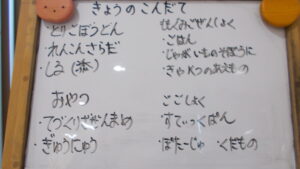 きょうのこんだて
・とりごぼうどん
・れんこんさらだ
・しる(添)
おやつ
・てづくりざがんまめ
・ぎゅうにゅう
ごはん
・じゃがいものそぼろに
・きゃべつのあえもの
ごごしょく
・すてぃっくぱん
・ぽたーじゅ くだもの